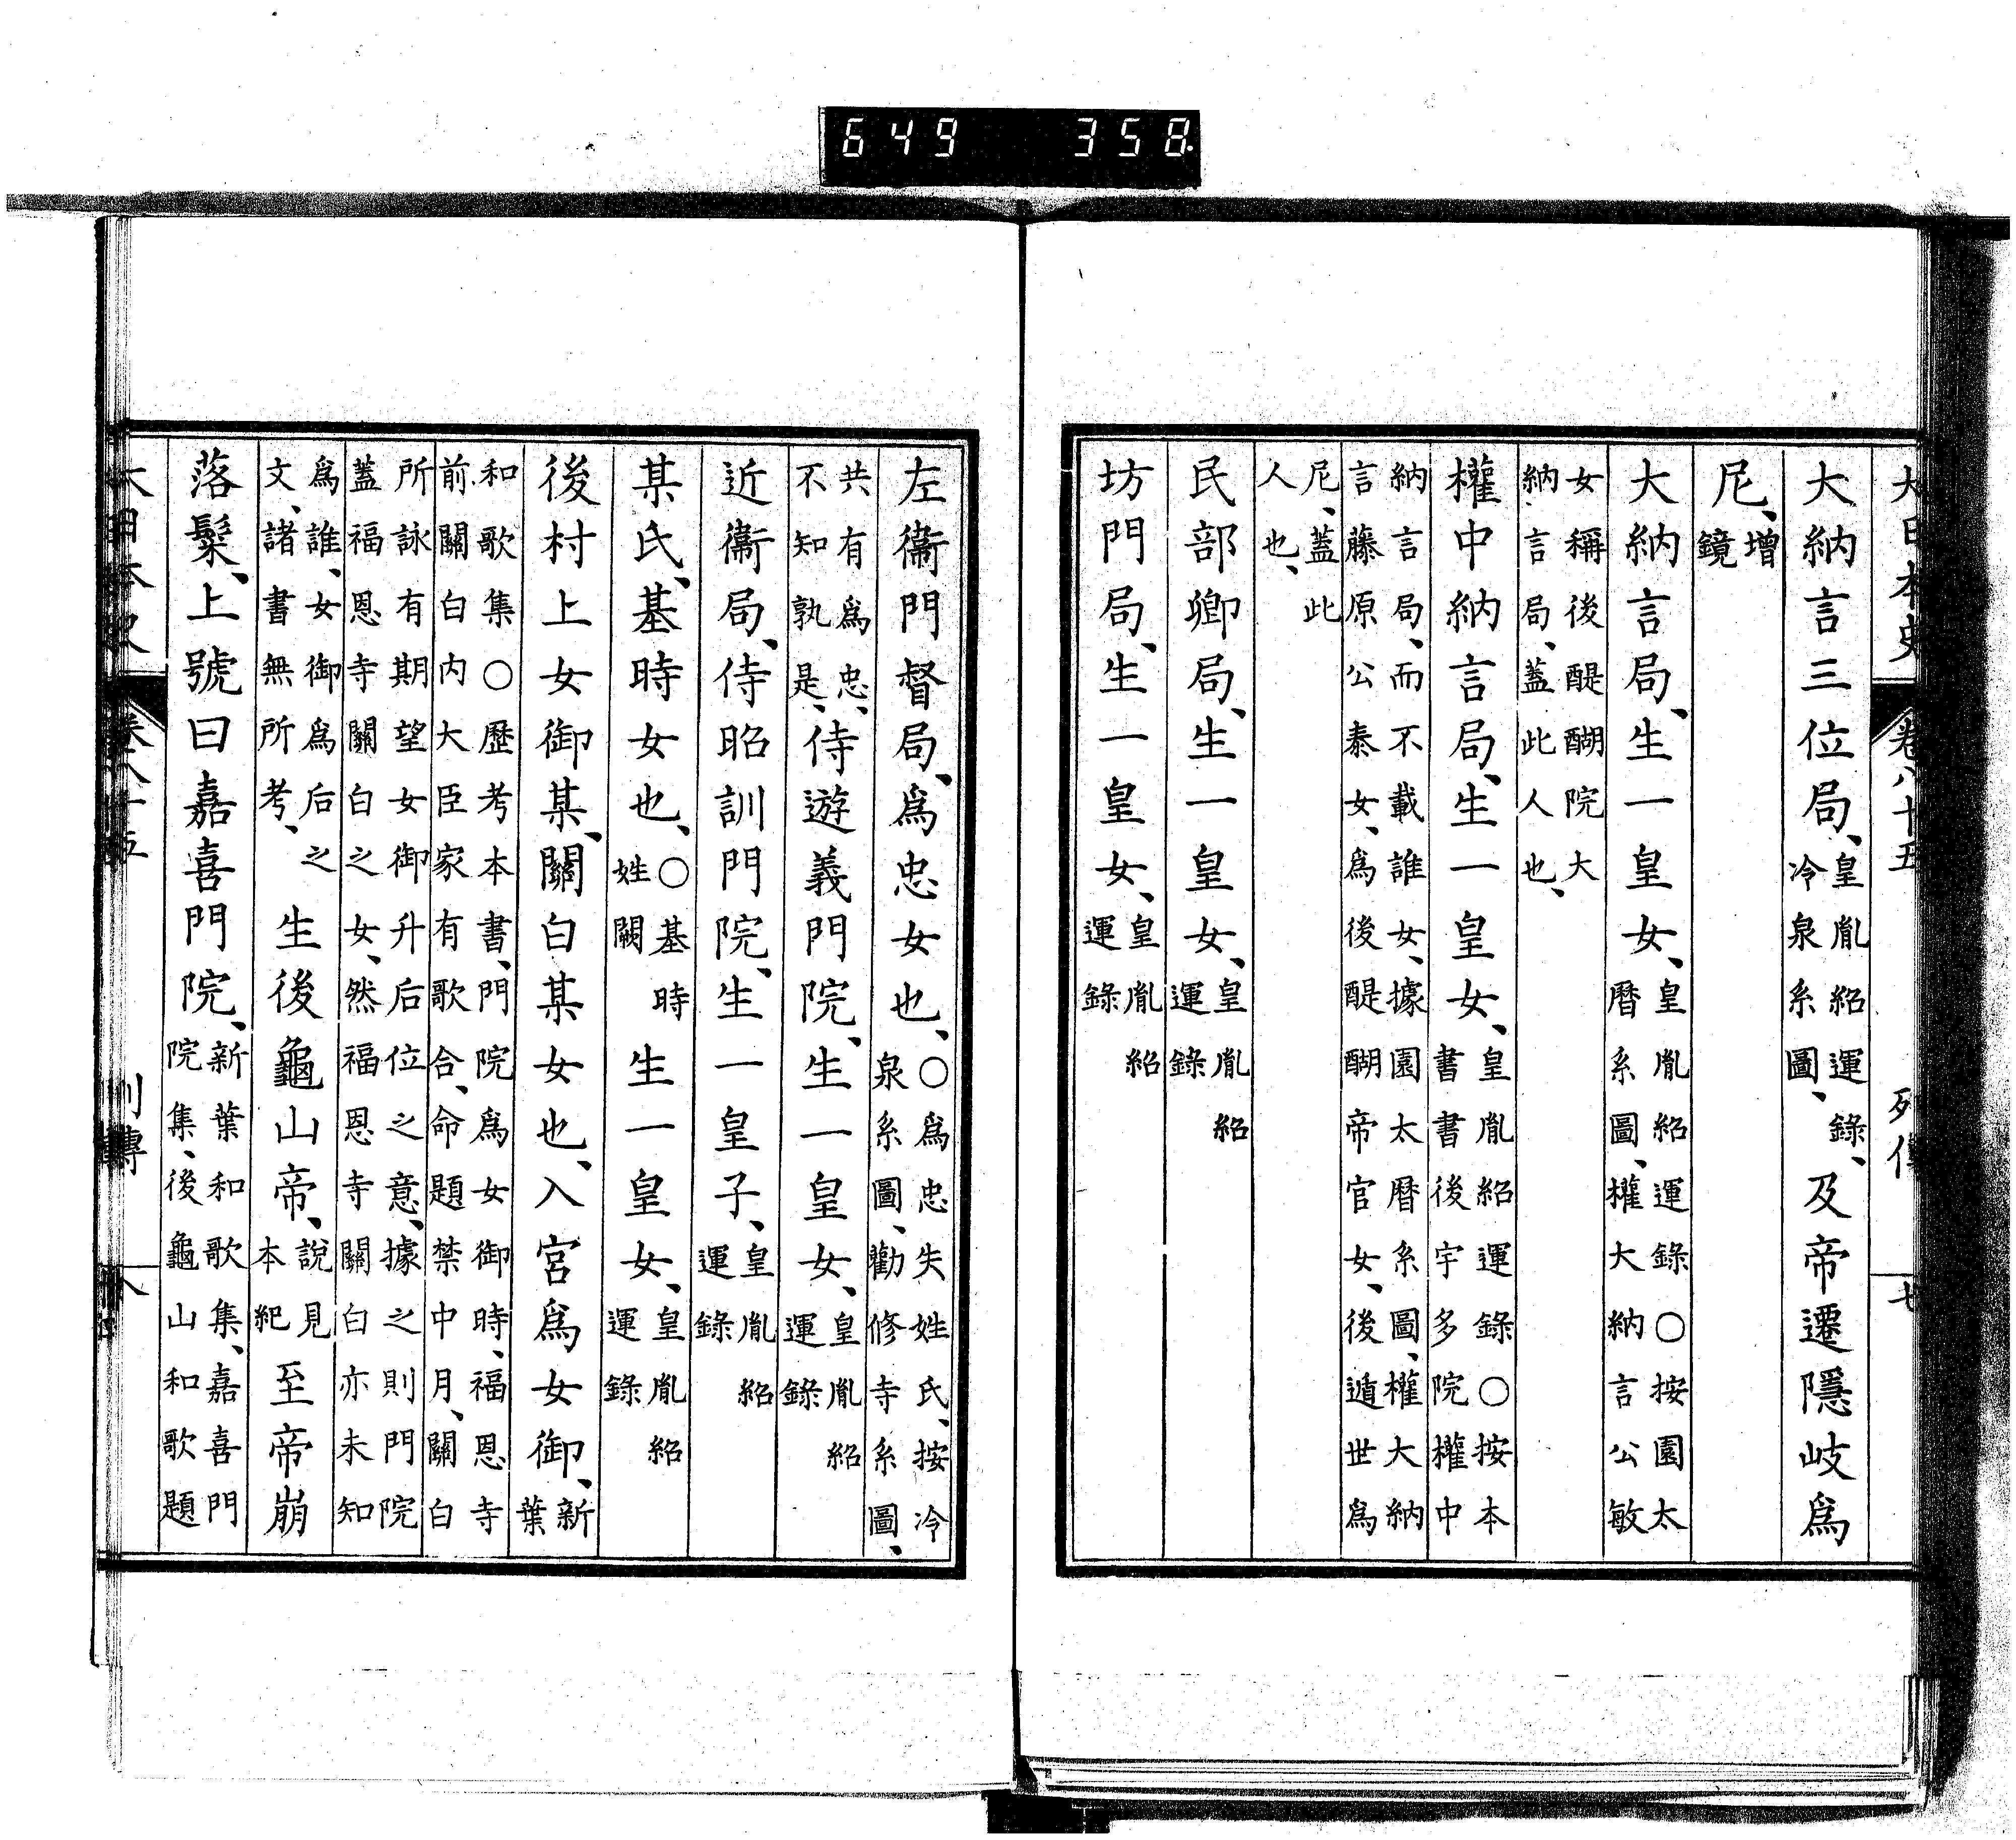 649 358
大日本史 卷八十五 列傳 七
大納言三位局、皇胤紹運錄、冷泉系圖、及帝遷隱岐爲
尼、增鏡
大納言局、生一皇女、皇胤紹運錄○按園太曆系圖、權大納言公敏
女稱後醍醐院大納言局、蓋此人也、
權中納言局、生一皇女、皇胤紹運錄○按本書書後宇多院權中
納言局、而不載誰女、據園太曆系圖、權大納言藤原公泰女、爲後醍醐帝官女、後遁世爲
尼、蓋此人也、
民部卿局、生一皇女、皇胤紹運錄
坊門局、生一皇女、皇胤紹運錄
左衞門督局、爲忠女也、○爲忠失姓氏、按冷泉系圖、勸修寺系圖、
共有爲忠、不知孰是、侍遊義門院、生一皇女、皇胤紹運錄
近衞局、侍昭訓門院、生一皇子、皇胤紹運錄
某氏、基時女也、○基時姓闕生一皇女、皇胤紹運錄
後村上女御某、關白某女也、入宮爲女御、新葉
和歌集○歷考本書、門院爲女御時、福恩寺前關白內大臣家有歌合、命題禁中月、關白
所詠有期望女御升后位之意、據之則門院蓋福恩寺關白之女、然福恩寺關白亦未知
爲誰、女御爲后之文、諸書無所考、生後龜山帝、說見本紀至帝崩
落髮、上號曰嘉喜門院、新葉和歌集、嘉喜門院集、後龜山和歌題
大日本史 卷八十五 列傳 八